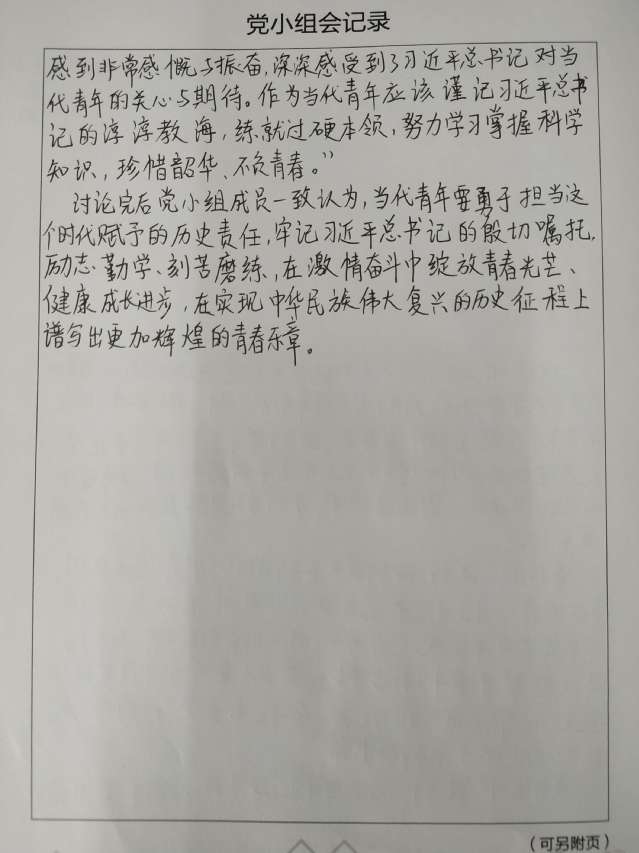 党小组会记录
感到非常感慨与振奋,深深感受到了习近平总书记对当
代青年的关心与期待。作为当代青年应该谨记习近平总书
记的淳淳教海,练就过硬本领,努力学习掌握科学
知识,珍惜韶华、不负青春。”
讨论完后党小组成员一致认为,当代青年要勇于担当这
个时代赋予的历史责任,牢记习近平总书记的殷切嘱托,
励志勤学、刻苦磨练,在激情奋斗中绽放青春光芒、
健康成长进步,在实现中华民族伟大复兴的历史征程上
谱写出更加辉煌的青春乐章。
(可另附页)